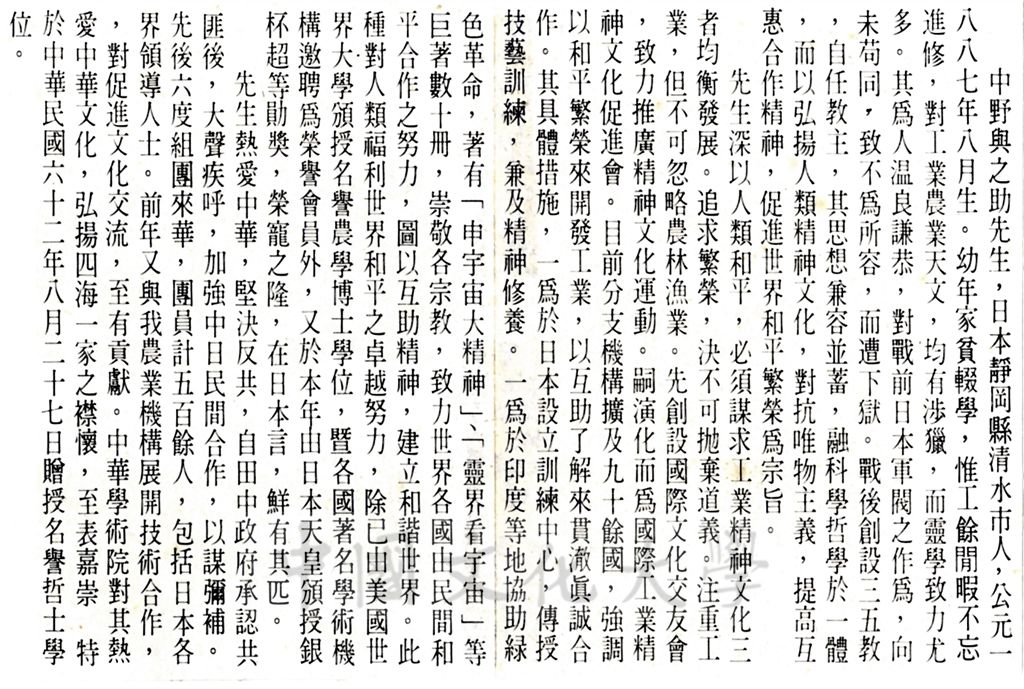 中野與之助先生，日本靜岡縣清水市人，公元一
八八七年八月生。幼年家貧輟學，惟工餘閒暇不忘
進修，對工業農業天文，均有涉獵，而靈學致力尤
多。其爲人温良謙恭，對戰前日本軍閥之作爲，向
未苟同，致不爲所容，而遭下獄。戰後創設三五教
，自任教主，其思想兼容並蓄，融科學哲學於一體
，而以弘揚人類精神文化，對抗唯物主義，提高互
惠合作精神，促進世界和平繁榮爲宗旨。
先生深以人類和平，必須謀求工業精神文化三
者均衡發展。追求繁榮，決不可拋棄道義。注重工
業，但不可忽略農林漁業。先創設國際文化交友會
，致力推廣精神文化運動。嗣演化而爲國際工業精
神文化促進會。目前分支機構擴及九十餘國，強調
以和平繁榮來開發工業，以互助了解來貫澈眞誠合
作。其具體措施，一爲於日本設立訓練中心，傳授
技藝訓練，兼及精神修養。一爲於印度等地協助緑
色革命，著有「申宇宙大精神」、「靈界看宇宙」等
巨著數十冊，崇敬各宗教，致力世界各國由民間和
平合作之努力，圖以互助精神，建立和諧世界。此
種對人類福利世界和平之卓越努力，除已由美國世
界大學頒授名譽農學博士學位，暨各國著名學術機
構邀聘爲榮譽會員外，又於本年由日本天皇頒授銀
杯超等勛獎，榮寵之隆，在日本言，鮮有其匹。
先生熱愛中華，堅決反共，自田中政府承認共
匪後，大聲疾呼，加強中日民間合作，以謀彌補。
先後六度組團來華，團員計五百餘人，包括日本各
界領導人士。前年又與我農業機構展開技術合作，
，對促進文化交流，至有貢獻。中華學術院對其熱
愛中華文化，弘揚四海一家之襟懷，至表嘉崇　特
於中華民國六十二年八月二十七日贈授名譽哲士學
位。
中國文化大學